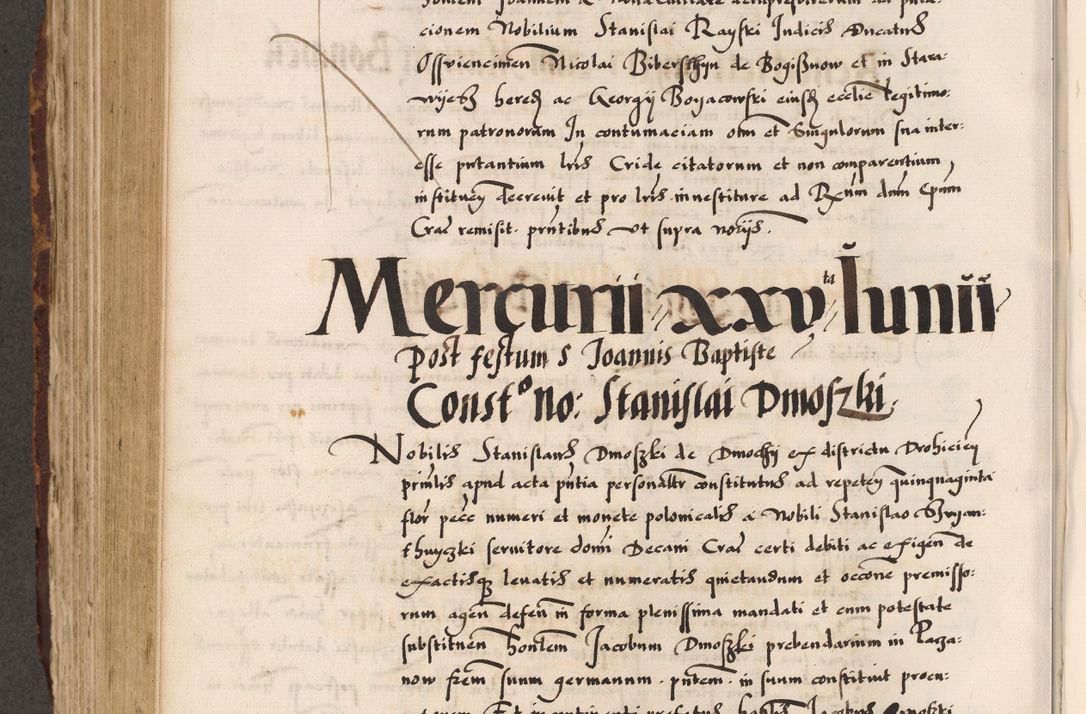 cionem Nobilium Stanislai Rayski Judicis Ducatus
Osswiencimen Nicolai Biberschtyn de Bogißnow et in Stara-
wyesz hered ac Georgij Boyacowski eiusd ecclie legitimo:
rum patronorum In contumaciam oim et Singulorum sua inter:
esse putantium lris Cride citatorum et non comparentium,
instituen decrevit et pro lris investiture ad Rxum dnm Epum
Crac remisit. pntibus ut supra notijs.
Mercurii xxvta Iunii
post festum S Joannis Baptiste
Consto no: Stanislai Dmoszki.
Nobilis Stanislaus Dmoszki de Dmochy ex districtu Drohicien
primlis apud acta pntia personaltr constitutus ad repeten quinquaginta
flor pecc numeri et monete polonicalis a Nobili Stanislao
servitore domi Decani Crac certi debiti ac exigen de
exactisqz levatis et numeratis quietandum et occone premisso:
rum agen defen in forma plenissima mandati et cum potestate
substituen honlem Jacobum Dmoszki prebendarium in Raza:
now frem suum germanum. pntem. in suum constituit procu-